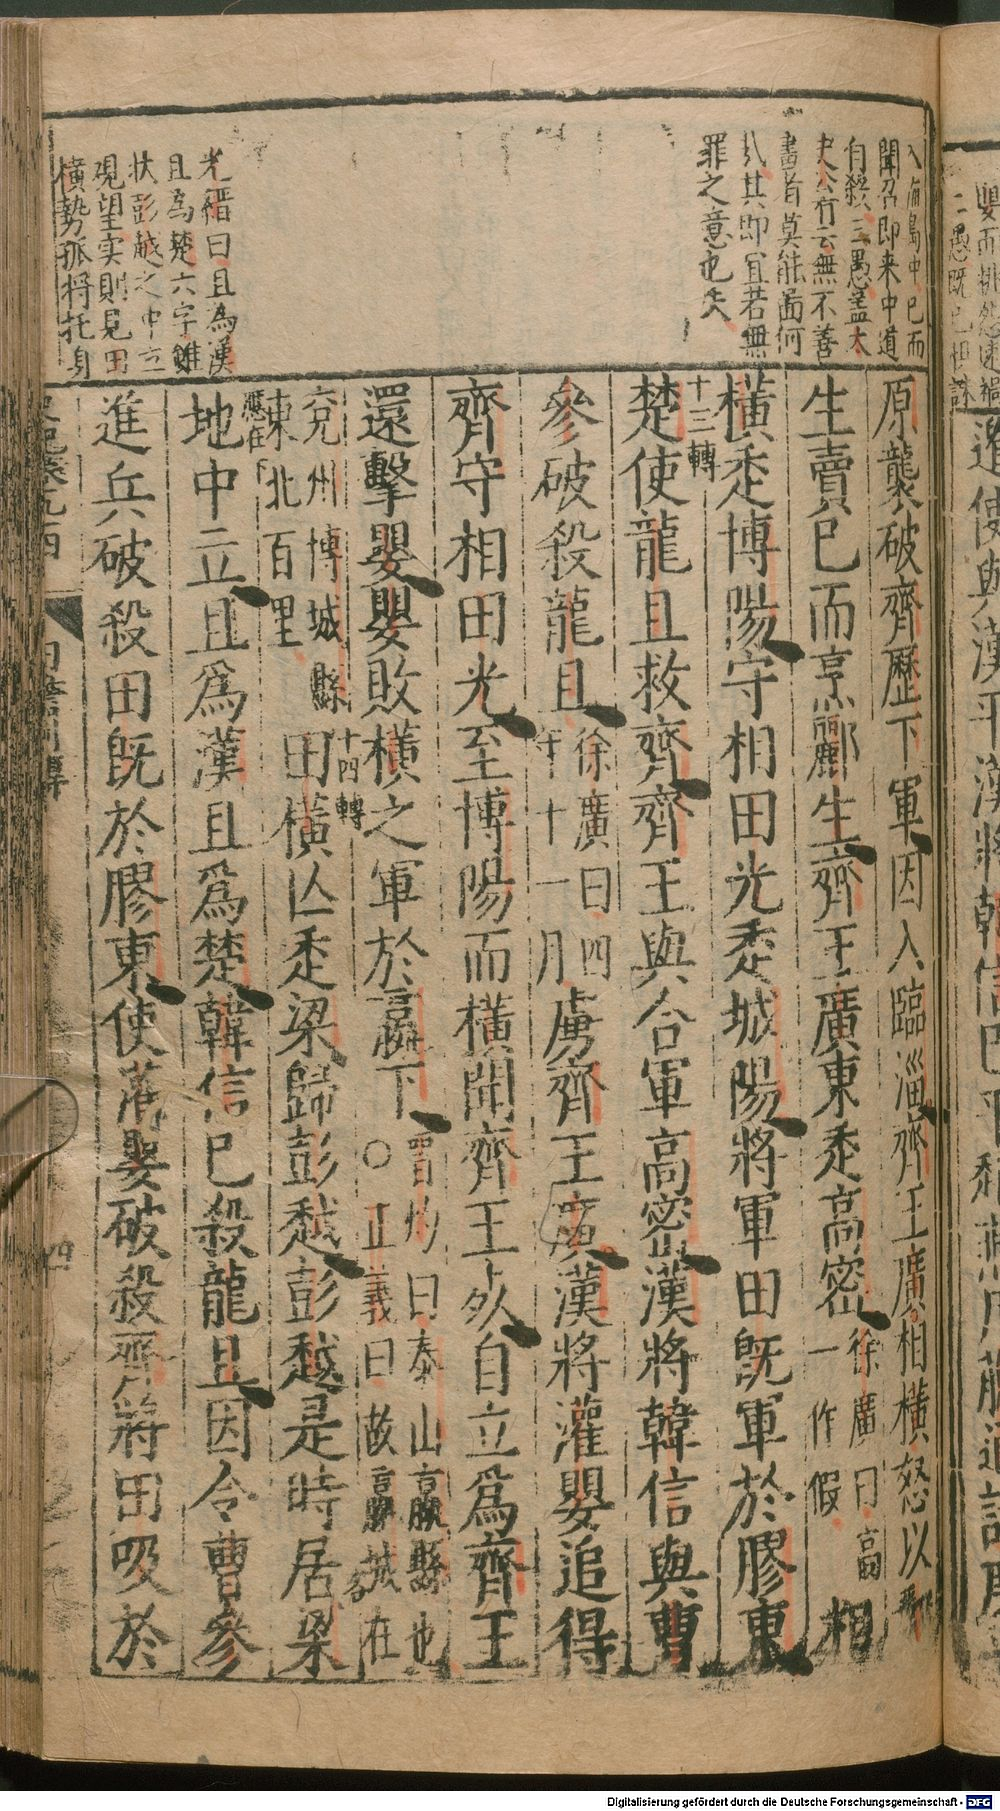 入海島中已而
聞召即來中道
自殺三愚盖太
史公有云無不善
畫者莫能啚何
㦲其即冝若無
罪之意也夫
光縉曰且為漢
且為楚六字雖
狀彭越之中立
覌望实則見田
橫勢孤將托身
原襲破齊歷下軍因入臨淄齊王廣相橫怒以酈
生賣已而烹酈生齊王廣東走高密徐廣曰高一作假相
橫走博陽守相田光走城陽將軍田既軍於膠東
十三轉
楚使龍且救齊齊王與合軍高密漢將韓信與曹
參破殺龍且徐廣曰四年十一月虜齊王廣漢將灌嬰追得
齊守相田光至博陽而橫聞齊王死自立爲齊王
還擊嬰嬰敗橫之軍於嬴下晋灼曰泰山嬴縣也○正義曰故嬴城在
兗州博城縣東北百里十四轉田橫亡走梁歸彭越彭越是時居梁
應在下
地中立且爲漢且爲楚韓信已殺龍且因令曹參
進兵破殺田既於膠東使灌嬰破殺齊將田吸於
Digitalisierung gefördert durch die Deutsche Forschungsgemeinschaft - DFG